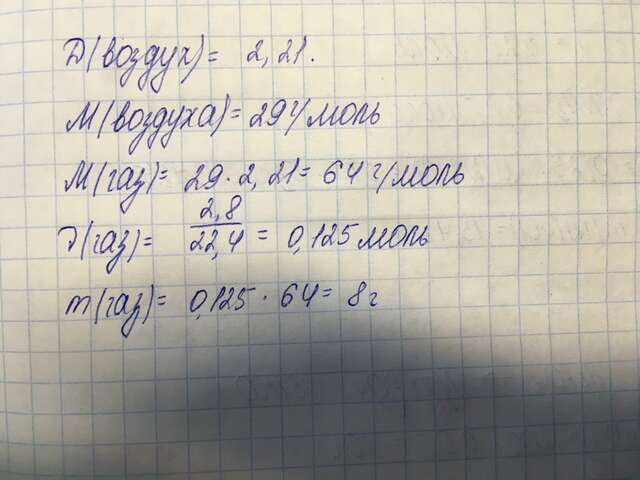 Д(воздух) = 2,21.
M(воздуха) = 29г/моль
M(газ) = 29·2,21 = 64 г/моль
ν(газ) = 2,8/22,4 = 0,125 моль
m(газ) = 0,125 · 64 = 8г